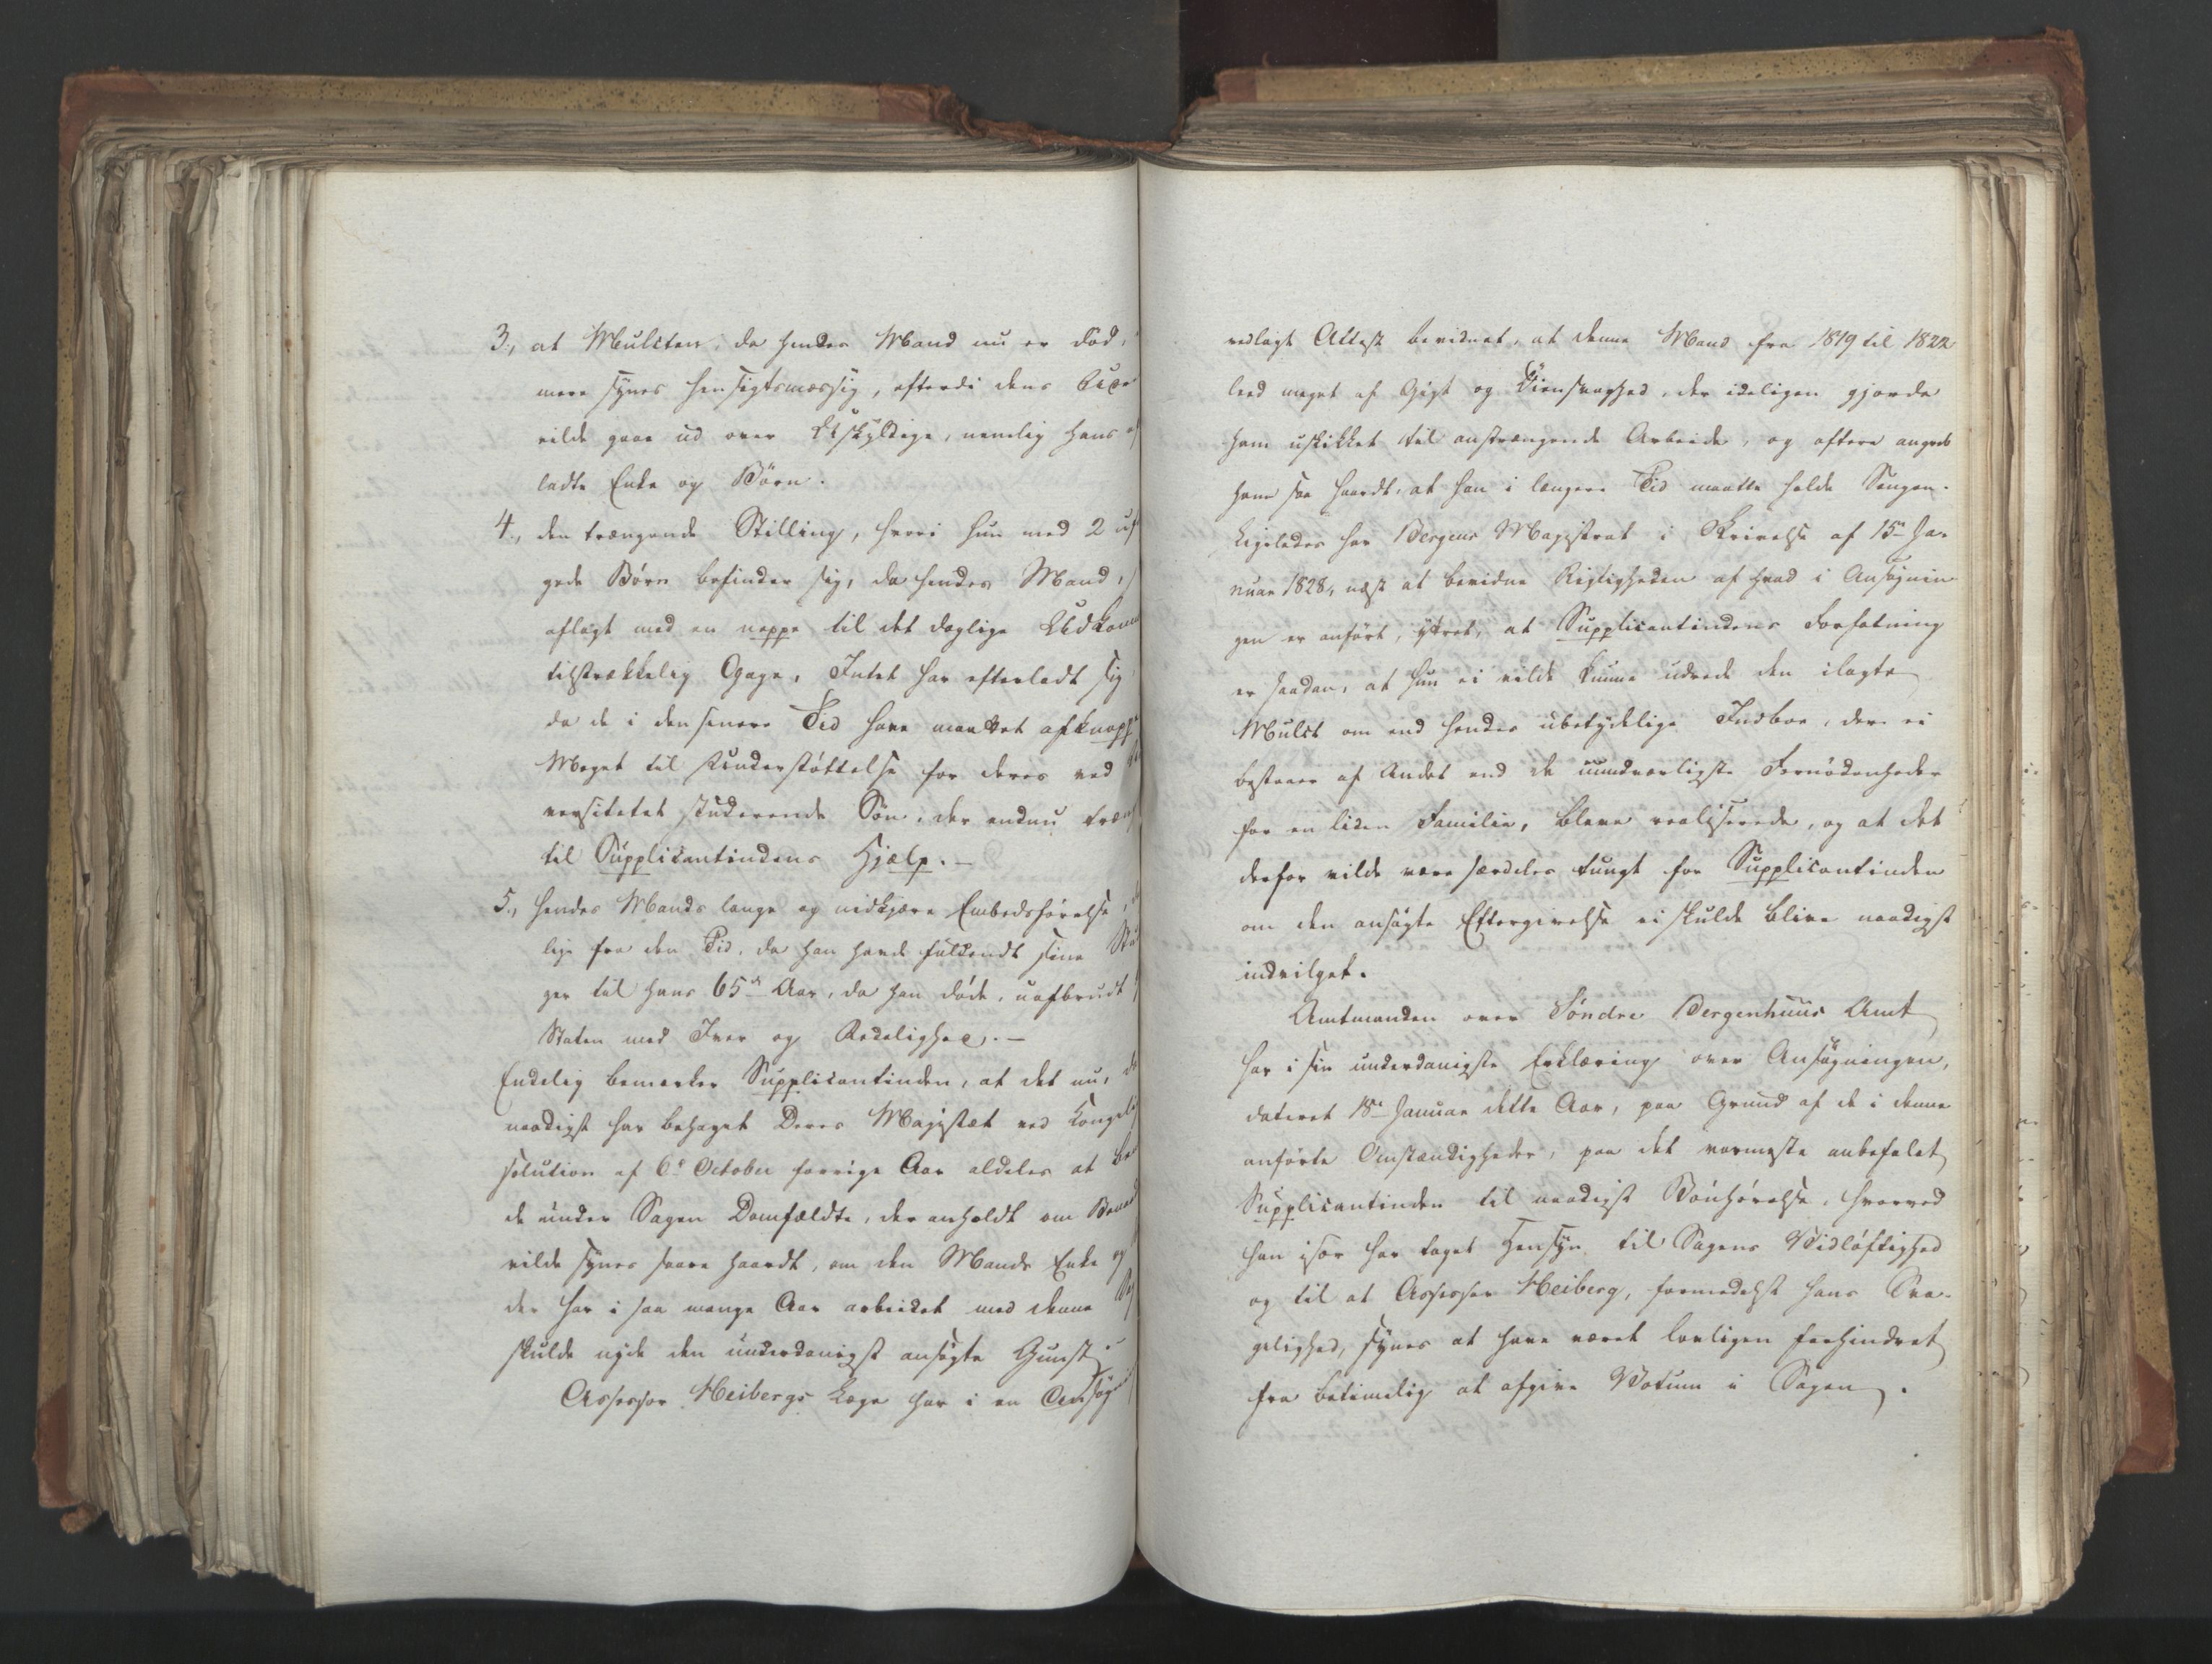 3., at Mulcten, da hendes Mand nu er død,
mere synes hensigtsmæssig, efterdi dens
vilde gaae ud over Uskyldige, nemlig hans
ladte Enke og Börn.
4., den trængende Stilling, hvori hun med 2
gede Börn befinder sig, da hendes Mand,
aflagt med en neppe til det daglige Udkomm
tilstrækkelig Gage, Intet har efterladt sig
da de i den senere Tid have maattet afknappe
Meget til Understøttelse for deres ved
versitetet studerende Sön, der endnu træn
til Supplicantindens Hjælp.-
5., hendes Mands lange og nidkjære Embedsförelse,
lige fra den Tid, da han havde fuldendt sine
ger til hans 65de Aar, da han døde, uafbrudt
Staten med Iver og Redelighed.-
Endelig bemærker Supplicantinden, at det nu, da
naadigst har behaget Deres Majestæt ved Kongelig
solution af 6te October forrige Aar aldeles at
de under Sagen Domfældte, der anholdt om
vilde synes saare haardt, om den Mands Enke og
der har i saa mange Aar arbeidet med denne
skulde nyde den underdanigst ansögte Gunst.
Assessor Heibergs Læge har i en Ansögn
vedlagt Attest bevidnet, at denne Mand fra 1819 til 1822
leed meget af Gigt og Öiensvaghed, der ideligen gjorde
ham uskikket til anstrængende Arbeide, og oftere angreb
ham saa haardt, at han i længere Tid maatte holde Sengen.
Ligeledes har Bergens Magistrat i Skrivelse af 15de Ja-
nuar 1828, næst at bevidne Rigtigheden af hvad i Ansögnin
gen er anfört, yttret, at Supplicantindens Forfatning
er saadan, at hun ei vilde kunne udrede den ilagte
Mulct om end hendes ubetydelige Indboe, der ei
bestaaer af Andet end de uundværligste Fornödenheder
for en liden Familie, bleve realiserede, og at det
derfor vilde være særdeles tungt for Supplicantinden
om den ansögte Eftergivelse ei skulde blive naadigst
indvilget.
Amtmanden over Söndre Bergenhuus Amt
har i sin underdanigste Erklæring over Ansögningen,
dateret 18de Januar dette Aar, paa Grund af de i denne
anförte Omstændigheder, paa det varmeste anbefalet
Supplicantinden til naadigst Bönhörelse, hvorved
han især har taget Hensyn til Sagens Vidlöftighed
og til at Assessor Heiberg, formedelst hans Sva-
gelighed, synes at have været lovligen forhindret
fra betimelig at afgive Votum i Sagen.